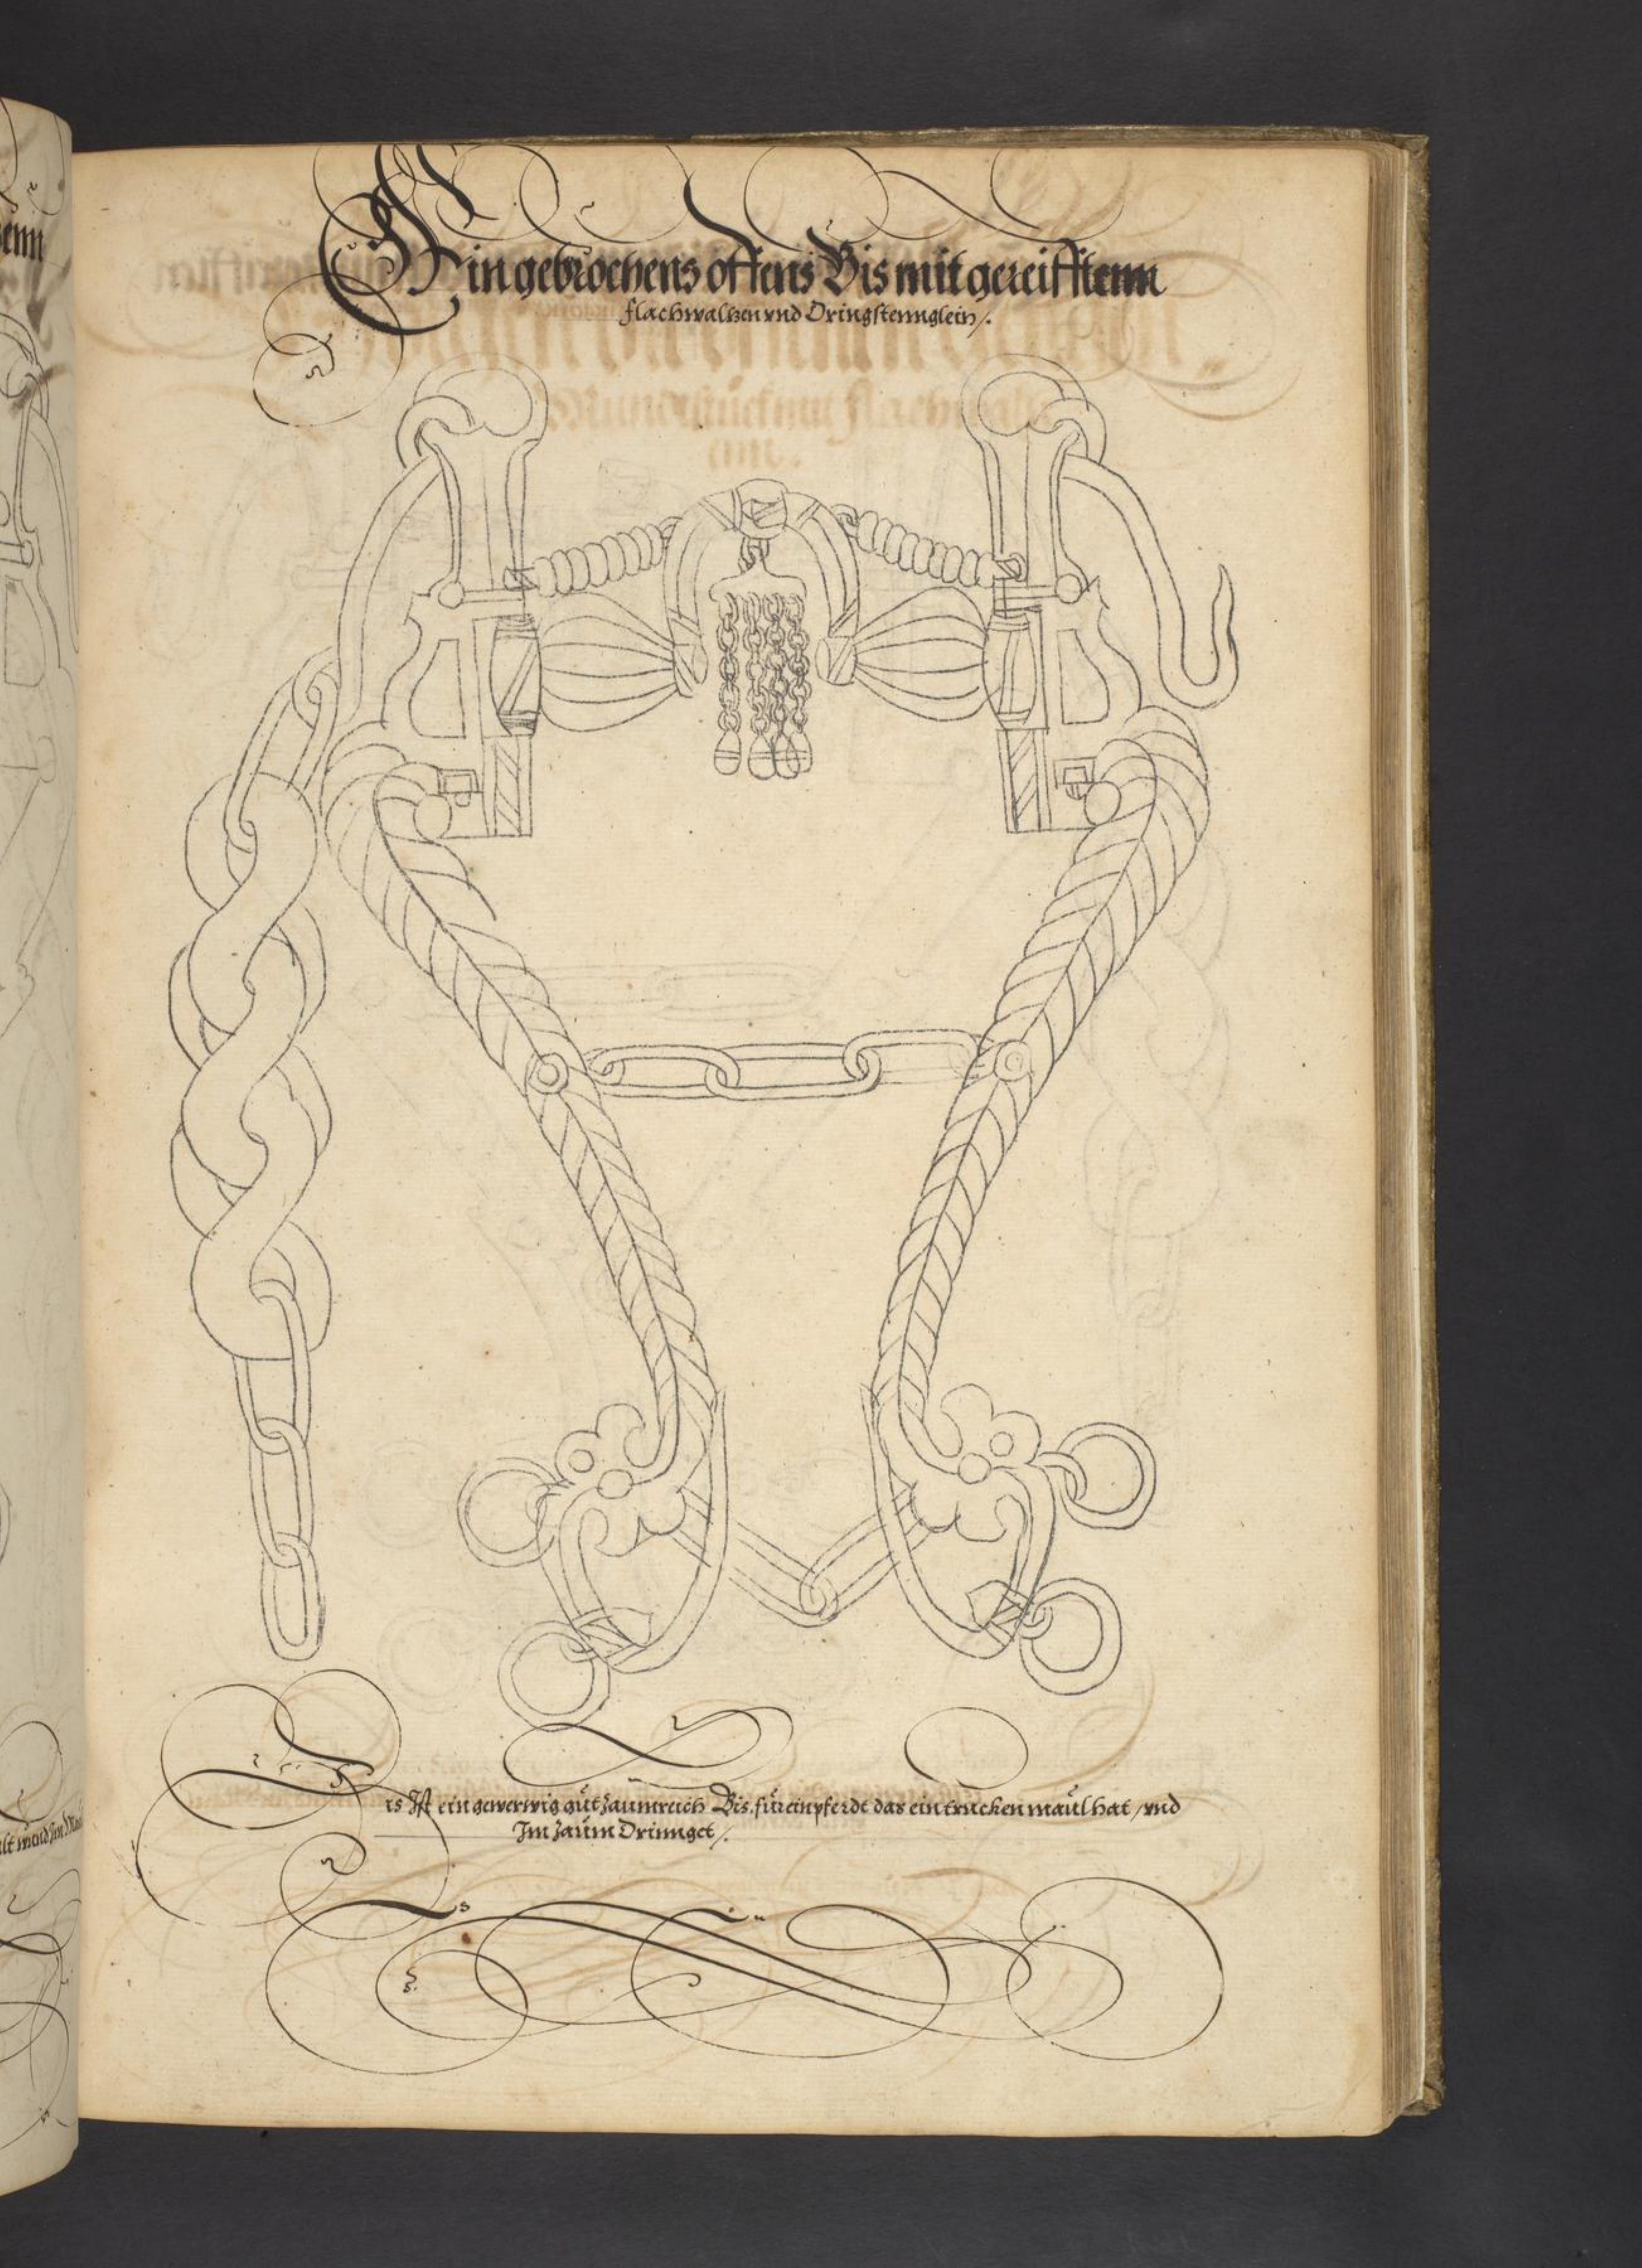 Ein gebrochens offens Bis mit gereifftenn
flachwaltzen vnd Dringstennglein /.
enn
Is Ist ein gewerwig gůt zaumreich Bis. für ein pferdt das ein trucken maůl hat / vnd
Im zaům Drinnget /.